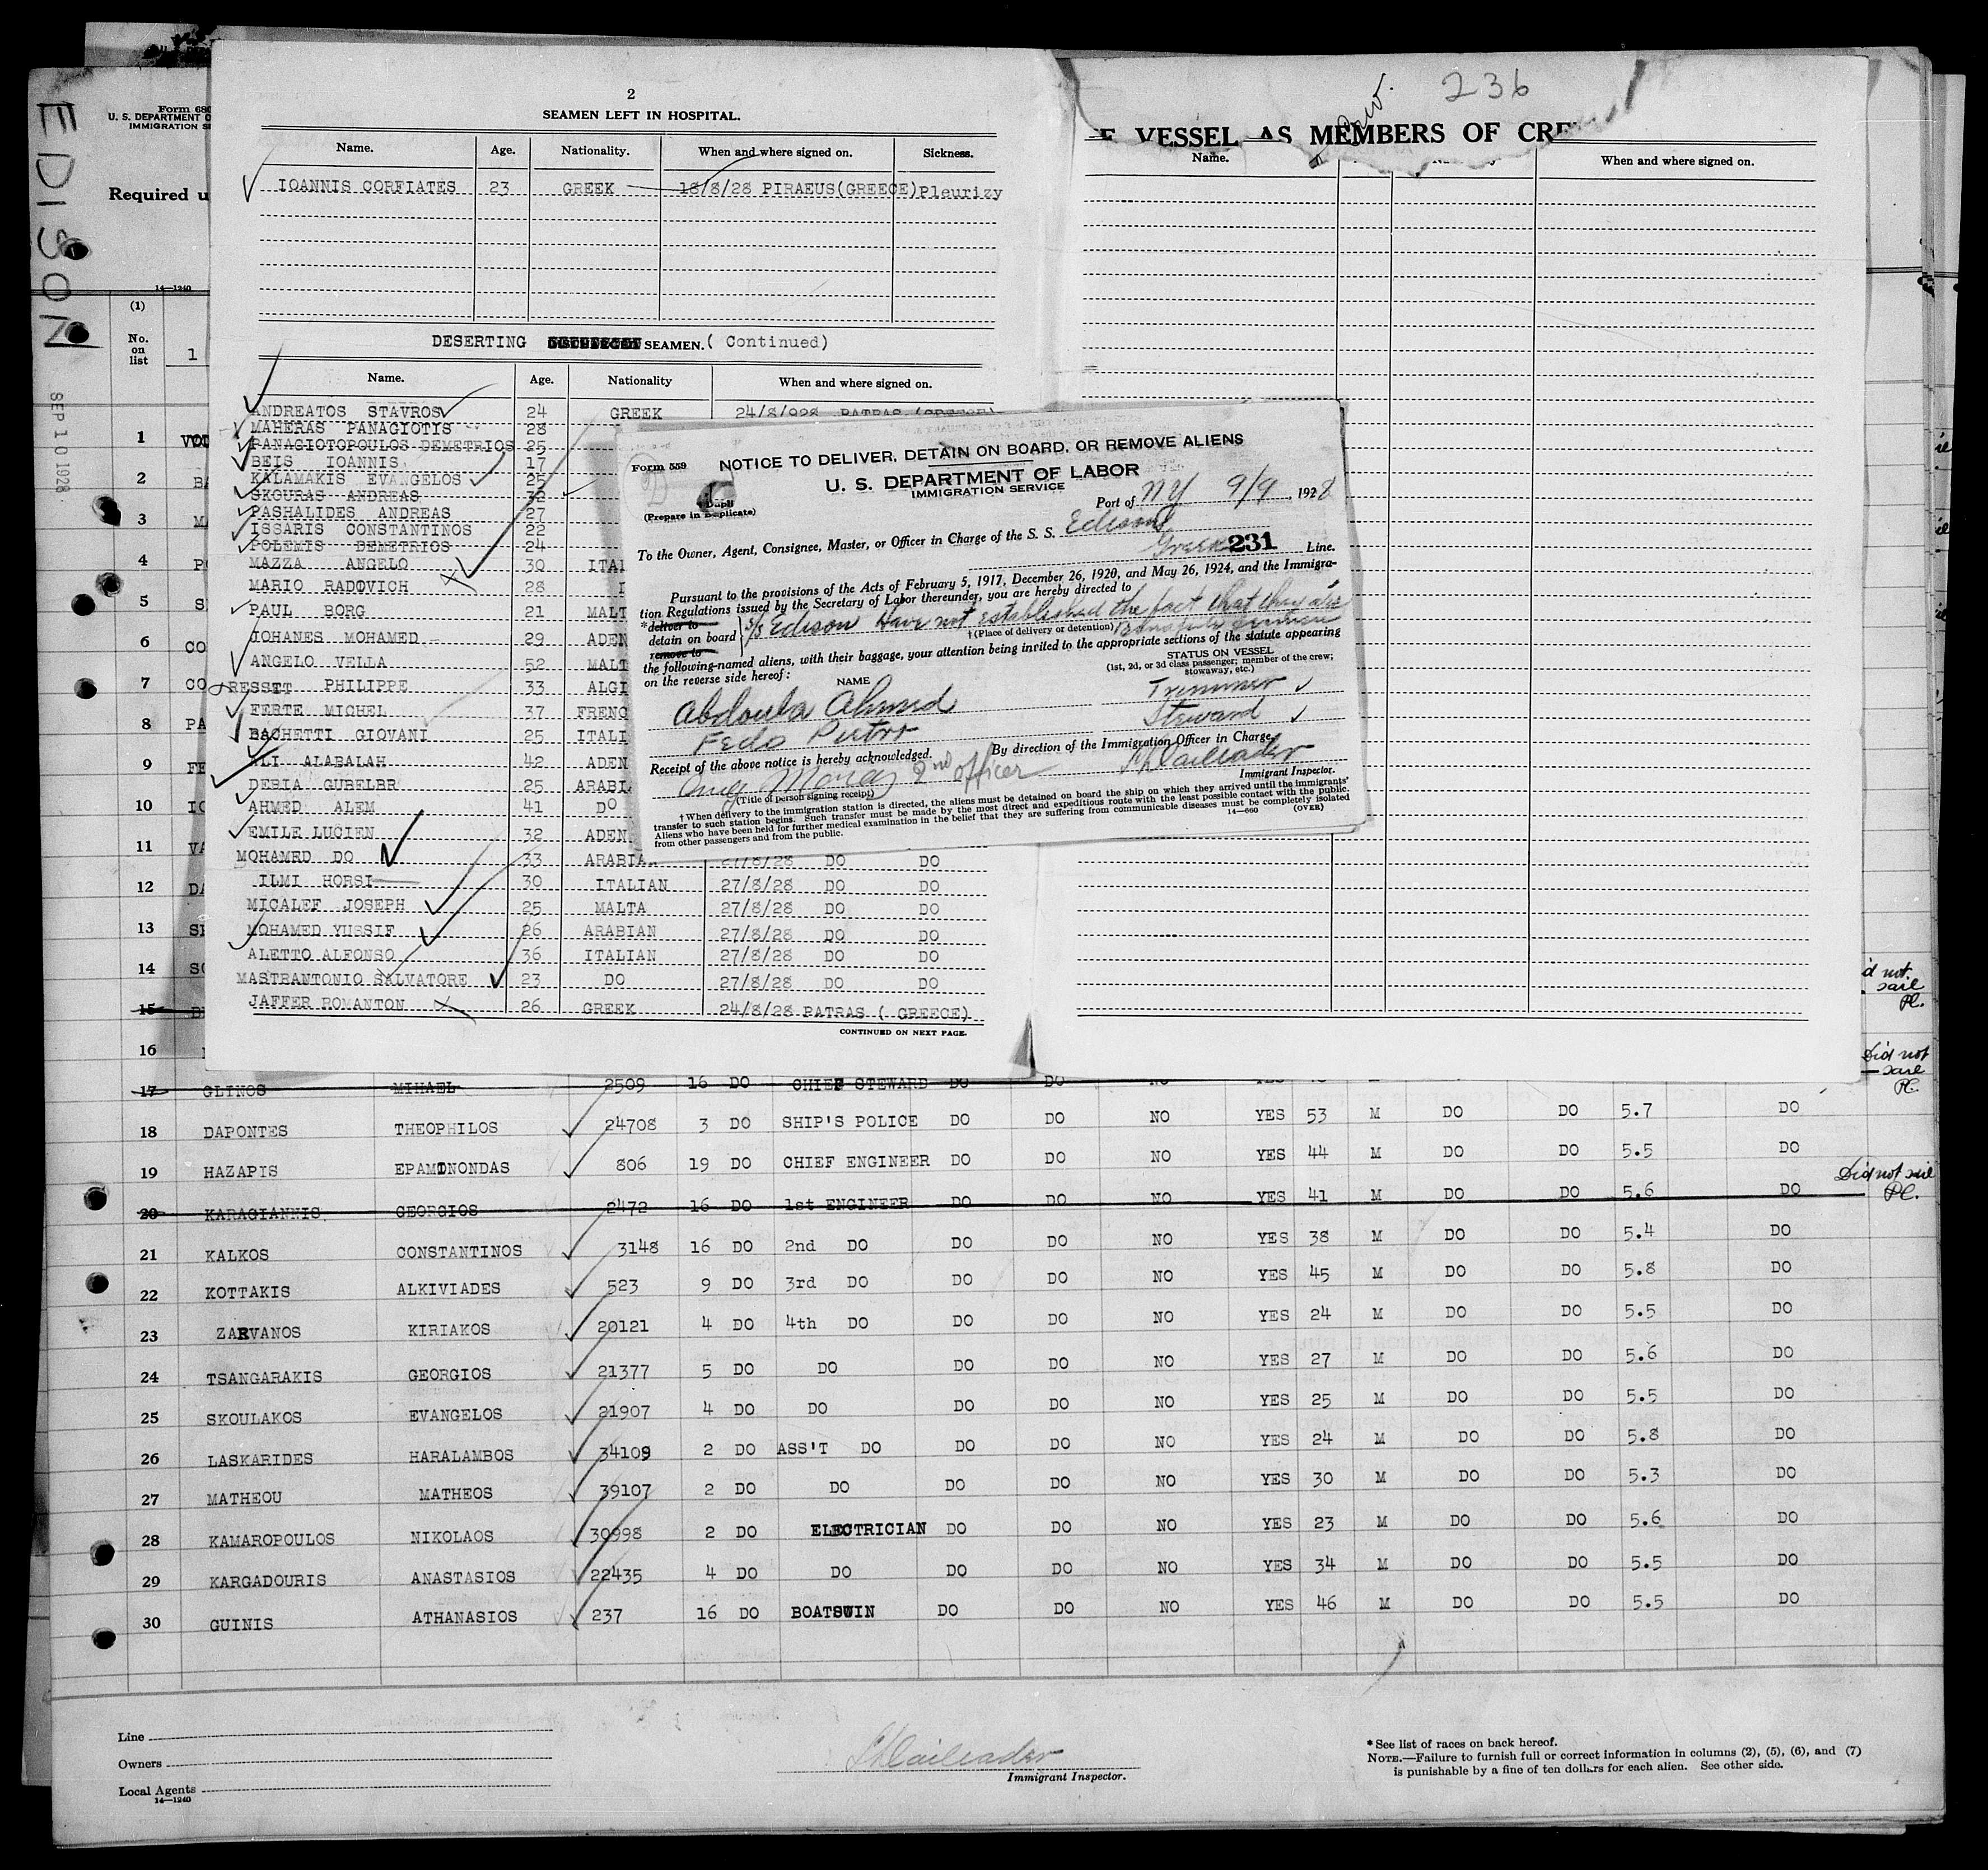 EDISON
SEP 10 1928
Form 680
U. S. DEPARTMENT O
IMMIGRATION SE
Required u
14—1240
(1)
No.
on
list
1
2
SEAMEN LEFT IN HOSPITAL.
Name. Age. Nationality. When and where signed on. Sickness.
IOANNIS CORFIATES 23 GREEK 18/8/28 PIRAEUS(GREECE) Pleurizy
DESERTING SEAMEN. ( Continued)
Name. Age. Nationality When and where signed on.
ANDREATOS STAVROS 24 GREEK 24/8/928 PATRAS (GREECE)
MAHERAS PANAGIOTIS 28
PANAGIOTOPOULOS DEMETRIOS 25
BEIS IOANNIS 17
KALAMAKIS EVANGELOS 25
SKOURAS ANDREAS 32
PASHALIDES ANDREAS 27
ISSARIS CONSTANTINOS 22
POLEMIS DEMETRIOS 24
MAZZA ANGELO 30 ITAL
MARIO RADOVICH 28
PAUL BORG 21 MALT
IOHANES MOHAMED 29 ADEN
ANGELO VELLA 52 MALT
RESSIT PHILIPPE 33 ALGI
FERTE MICHEL 37 FRENC
BACHETTI GIOVANI 25 ITALI
ALI ALABALAH 42 ADEN
DERIA GUBELBR 25 ARABIA
AHMED ALEM 41 DO
EMILE LUCIEN 32 ADEN
MOHAMED DO 33 ARABIAN 27/8/28 DO DO
ILMI HORSI 30 ITALIAN 27/8/28 DO DO
MICALEF JOSEPH 25 MALTA 27/8/28 DO DO
MOHAMED YUSSIF 26 ARABIAN 27/8/28 DO DO
ALETTO ALFONSO 36 ITALIAN 27/8/28 DO DO
MASTRANTONIO SALVATORE 23 DO 27/8/28 DO DO
JAFFER ROMANTON 26 GREEK 24/8/28 PATRAS ( GREECE)
CONTINUED ON NEXT PAGE.
236
E VESSEL AS MEMBERS OF CRE
Name. When and where signed on.
Form 559
NOTICE TO DELIVER, DETAIN ON BOARD, OR REMOVE ALIENS
U. S. DEPARTMENT OF LABOR
IMMIGRATION SERVICE
(Prepare in Duplicate)
Port of NY 9/9, 1928
To the Owner, Agent, Consignee, Master, or Officer in Charge of the S. S. Edison
Greek 231 Line.
Pursuant to the provisions of the Acts of February 5, 1917, December 26, 1920, and May 26, 1924, and the Immigra-
tion Regulations issued by the Secretary of Labor thereunder, you are hereby directed to
*deliver to
detain on board
remove to
S/S Edison Have not established the fact that they are
† (Place of delivery or detention) bona fide seamen
the following-named aliens, with their baggage, your attention being invited to the appropriate sections of the statute appearing
on the reverse side hereof:
NAME
STATUS ON VESSEL
(1st, 2d, or 3d class passenger; member of the crew;
stowaway, etc.)
Abdoula Ahmed Trimmer
Fedo Pietro Steward
Receipt of the above notice is hereby acknowledged. By direction of the Immigration Officer in Charge,
2nd officer
(Title of person signing receipt) Immigrant Inspector.
† When delivery to the immigration station is directed, the aliens must be detained on board the ship on which they arrived until the immigrants'
transfer to such station begins. Such transfer must be made by the most direct and expeditious route with the least possible contact with the public.
Aliens who have been held for further medical examination in the belief that they are suffering from communicable diseases must be completely isolated
from other passengers and from the public. 14—660 (OVER)
1
2 BA
3 MA
4 PO
5
6 CO
7 CO
8 PA
9 FE
10 IO
11 VA
12 DA
13
14 SO
d not
sail
PC.
15
16
Did not
sail
PC.
17 GLINOS MIHAEL 2509 16 DO CHIEF STEWARD DO DO NO
18 DAPONTES THEOPHILOS 24708 3 DO SHIP'S POLICE DO DO NO YES 53 M DO DO 5.7 DO
19 HAZAPIS EPAMINONDAS 806 19 DO CHIEF ENGINEER DO DO NO YES 44 M DO DO 5.5 DO
20 KARAGIANNIS GEORGIOS 2472 16 DO 1st ENGINEER DO DO NO YES 41 M DO DO 5.6 DO Did not sail PC.
21 KALKOS CONSTANTINOS 3148 16 DO 2nd DO DO DO NO YES 38 M DO DO 5.4 DO
22 KOTTAKIS ALKIVIADES 523 9 DO 3rd DO DO DO NO YES 45 M DO DO 5.8 DO
23 ZARVANOS KIRIAKOS 20121 4 DO 4th DO DO DO NO YES 24 M DO DO 5.5 DO
24 TSANGARAKIS GEORGIOS 21377 5 DO DO DO DO NO YES 27 M DO DO 5.6 DO
25 SKOULAKOS EVANGELOS 21907 4 DO DO DO DO NO YES 25 M DO DO 5.5 DO
26 LASKARIDES HARALAMBOS 34109 2 DO ASS'T DO DO DO NO YES 24 M DO DO 5.8 DO
27 MATHEOU MATHEOS 39107 2 DO DO DO DO NO YES 30 M DO DO 5.3 DO
28 KAMAROPOULOS NIKOLAOS 30998 2 DO ELECTRICIAN DO DO NO YES 23 M DO DO 5.6 DO
29 KARGADOURIS ANASTASIOS 22435 4 DO DO DO DO NO YES 34 M DO DO 5.5 DO
30 GUINIS ATHANASIOS 237 16 DO BOATSWIN DO DO NO YES 46 M DO DO 5.5 DO
Line
Owners
Local Agents
14—1240
Immigrant Inspector.
* See list of races on back hereof.
NOTE.—Failure to furnish full or correct information in columns (2), (5), (6), and (7)
is punishable by a fine of ten dollars for each alien. See other side.